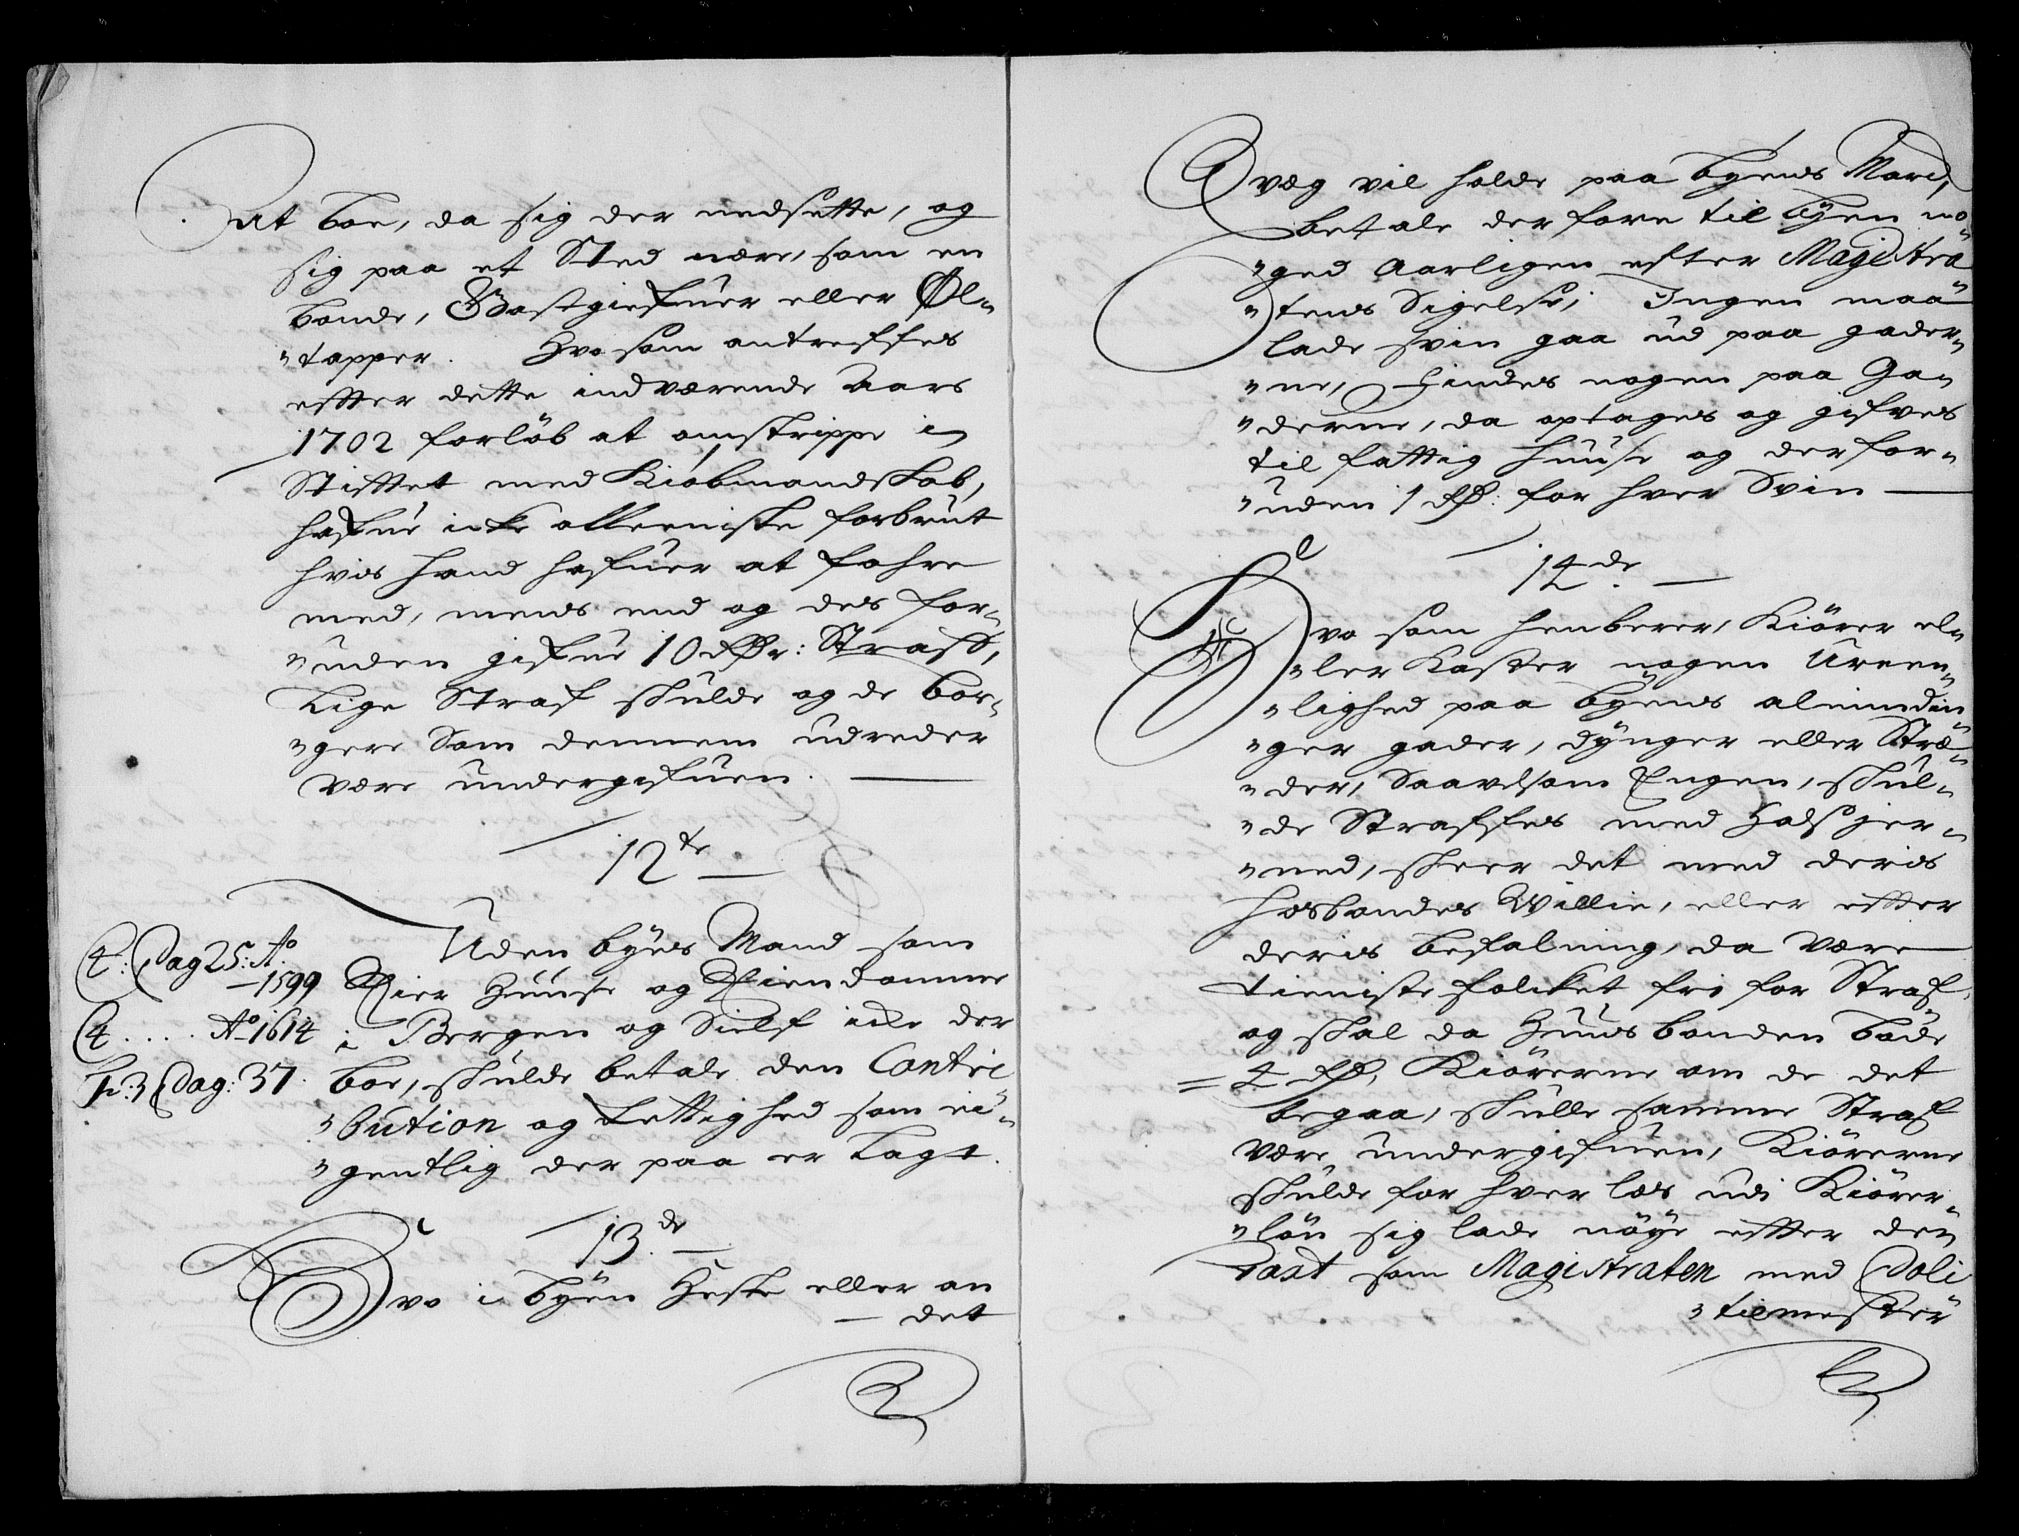 at boe, da sig der nedsette, og
sig paa et Sted nære, som en
bonde, Gastgiefuer eller Øl-
"tapper. Hvo som antreffes
efter dette indværende Aars
1702 forløb at omstrippe i
Stiftet med Kiøbmandskab,
hafue icke alleeniste forbrut
hvis hand hafuer at fahre
med, mens end og des for-
"uden gifue 10 Rdr: Straff,
Lige Straf skulde og de bor-
"gere Som dennem udreder
være undergifuen.
12te
Uden byes Mand som
Eier Huuse og Eiendomme
i Bergen og Sielf icke der
boe, skulde betale den Contri
"bution og Rettighed som ei-
"gentlig der paa er Lagt.
C4: Pag 25: Ao
1599
C4 .... Ao 1614
P:3 Pag: 37.
13de
Hvo i byen Heste eller an
det
Qvæg vil holde paa byens Marck,
betale der fore til byen no
"ged Aarligen efter Magistra
"tens Sigelse; Ingen maa
lade svin gaa ud paa gader-
"ne, findes nogen paa Ga-
"derne, da optages og gifves
til fattig huuse og derfor-
"uden 1 Rd: for hver Svin
14de
Hvo som henberer, Kiører el-
"ler Kaster nogen Ureen-
"lighed paa byens almindin
"ger gader, dynger eller Stræ-
"der, Saavelsom Engen, skul-
"de Straffes med Halsjer-
"ned, skeer det med deris
hosbondes Willie, eller efter
deris befalning, da være
tieniste folcket fri for Straf,
og skal da Huusbonden bøde
4 Rd, Kiørerne om de det
begaa, skulle samme Straf
være undergifuen, Kiørerne
skulde for hver læs udi Kiører-
"løn sig lade nøye efter den
Taxt som Magistraten med Poli
"tiemester